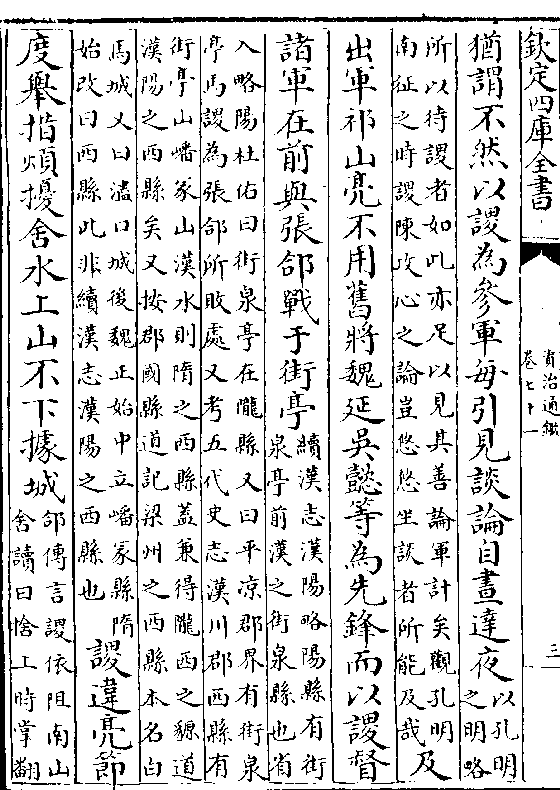 欽定四庫全書
資治通鑑
卷七十一
三
猶謂不然以謖為參軍每引見談論自晝達夜
以孔明
之明略
所以待謖者如此亦足以見其善論軍計矣觀孔明
南征之時謖陳攻心之論豈悠悠坐談者所能及哉
及
出軍祁山亮不用舊將魏延吳懿等為先鋒而以謖督
諸軍在前與張郃戰于街亭
續漢志漢陽略陽縣有街
泉亭前漢之街泉縣也省
入略陽杜佑曰街泉亭在隴縣又曰平凉郡界有街泉
亭馬謖為張郃所敗處又考五代史志漢川郡西縣有
街亭山嶓冢山漢水則隋之西縣蓋兼得隴西之豲道
漢陽之西縣矣又按郡國縣道記梁州之西縣本名白
馬城又曰濜口城後魏正始中立嶓冢縣隋
始改曰西縣此非續漢志漢陽之西縣也
謖違亮節
度舉措煩擾舍水上山不下據城
郃傳言謖依阻南山
舍讀曰捨上時掌翻